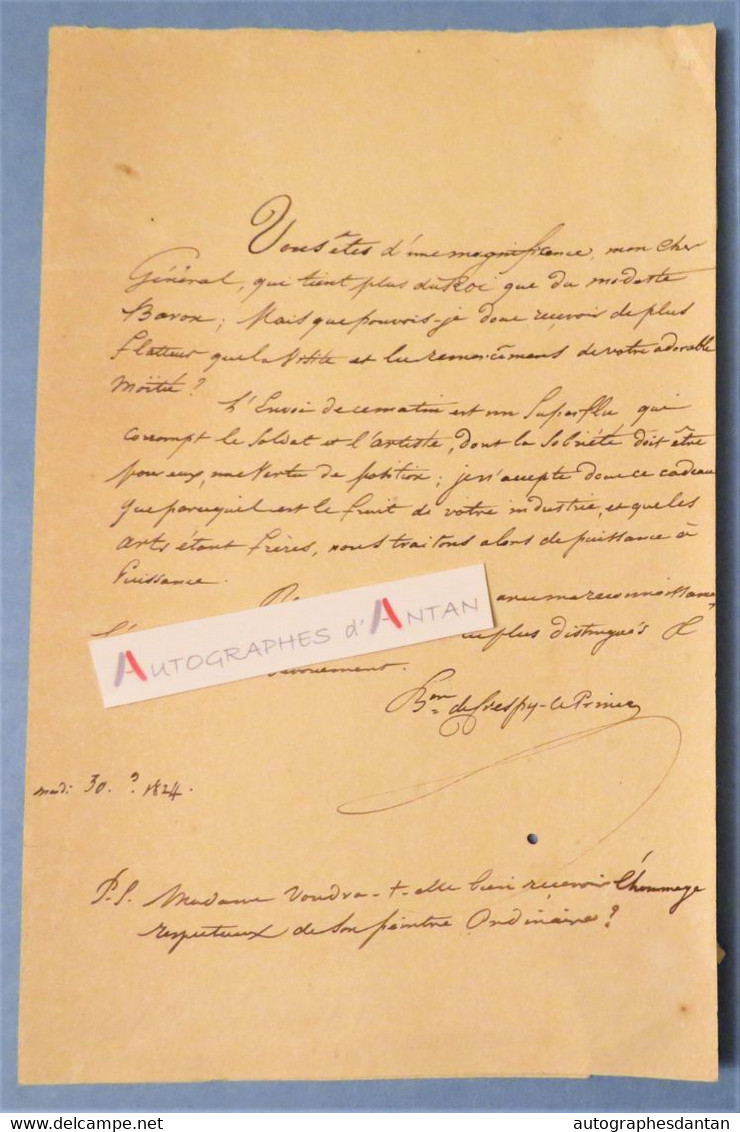 Vous êtes d'une magnificence, mon cher
Général, qui tient plus du Roi que du modeste
Baron; Mais que pouvois-je donc reçevoir de plus
flatteur que la Visite et les remercîmens de votre adorable
Moitié?
L'Envoi de ce matin est un Superflu qui
corrompt le Soldat et l'artiste, dont la Sobriété doit être
pour eux, une Vertu de position; je n'accepte donc ce cadeau
que parcequ'il est le fruit de votre industrie, et que les
arts étant frères, nous traitons alors de puissance à
Puissance.
avec ma reconnoissance,
plus distingués &
dévouement.
Bon de Crespy-le Prince
mardi 30. 1824.
P.S. Madame Voudra-t-elle bien recevoir l'hommage
respectueux de Son peintre Ordinaire?
AUTOGRAPHES d'ANTAN
delcampe.net
autographesdantan